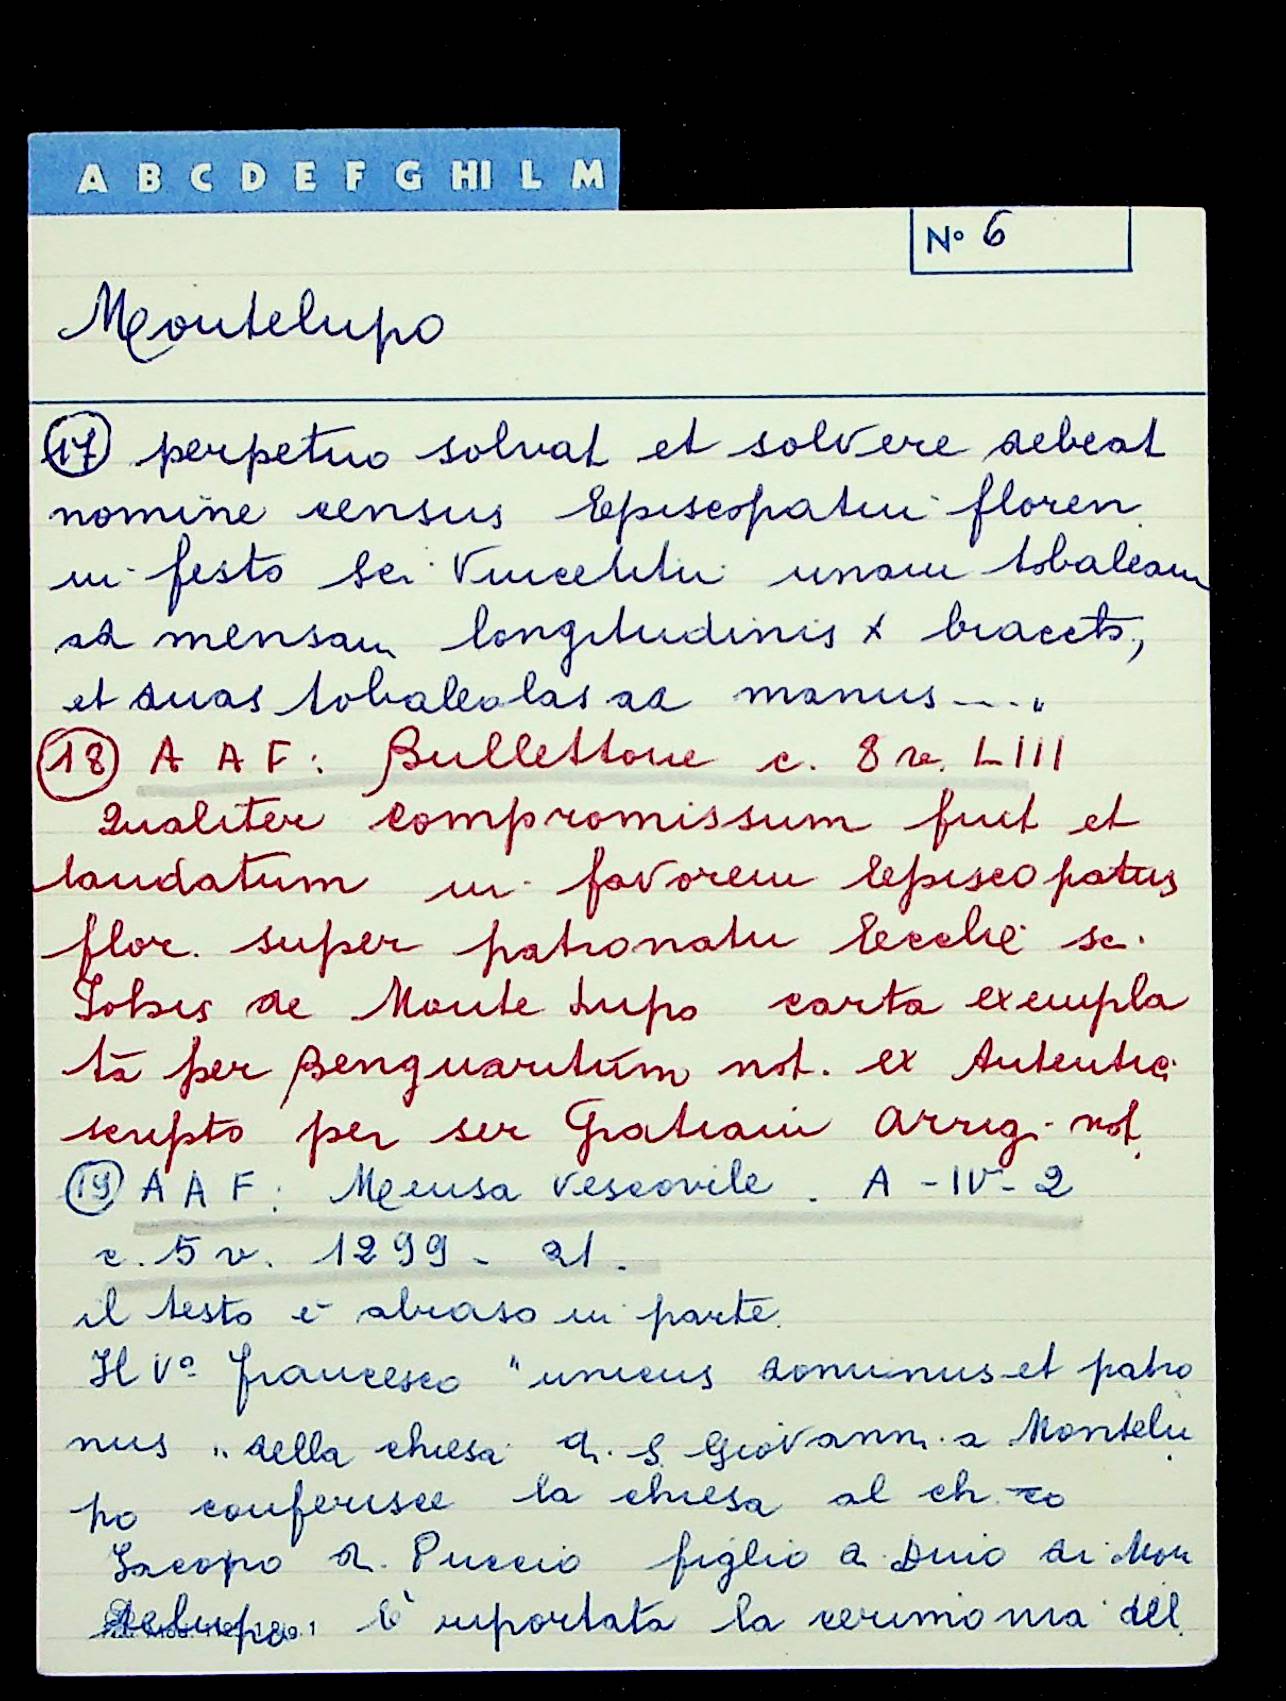 A B C D E F G HI L M
N° 6
Montelupo
17 perpetuo solvat et solvere debeat
nomine census Episcopatui floren.
in festo sci Vincentii unam tobaleam
ad mensam longitudinis x bracct.,
et duas tobaleolas ad manus ...."
18 A A F: Bullettone c. 8 r. LIII
Qualiter compromissum fuit et
laudatum in favorem Episcopatus
flor. super patronatu Ecclie sc.
Johis de Monte Lupo carta exempla
ta per Benguaritum not. ex Autentica
scripto per ser Gratiani Arrig. not.
19 A A F: Mensa Vescovile. A - IV - 2
c. 5 v. 1299 - 21.
il testo è abraso in parte.
Il V° Francesco "unicus dominus et patro
nus" della chiesa d. S. Giovanni a Montelu
po conferisce la chiesa al ch. co
Jacopo d. Puccio figlio d. Duio di Mon
telupo. È riportata la cerimonia del